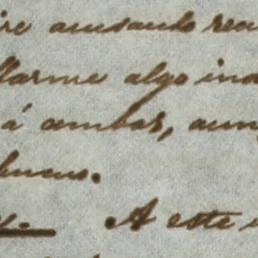 re acusando rec
llarme algo ind
á ambas, aunq
buenos.
A este